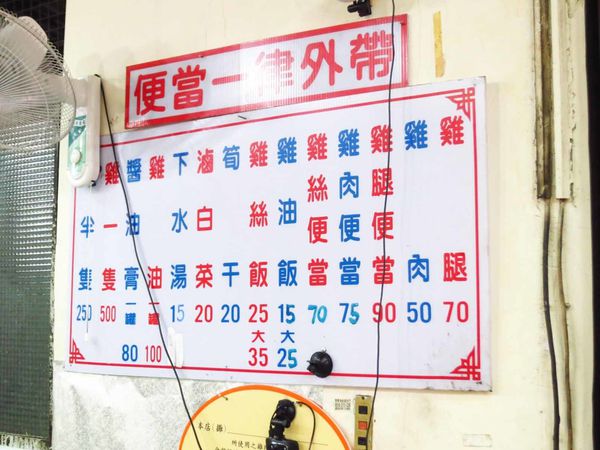 便當一律外帶
雞腿 70
雞肉 50
雞腿便當 90
雞肉便當 75
雞絲便當 70
雞油飯 15 大 25
雞絲飯 25 大 35
筍干 20
滷白菜 20
下水湯 15
雞油一罐 100
醬油膏一罐 80
雞一隻 500
半隻 250
本店(攤)
所使用之